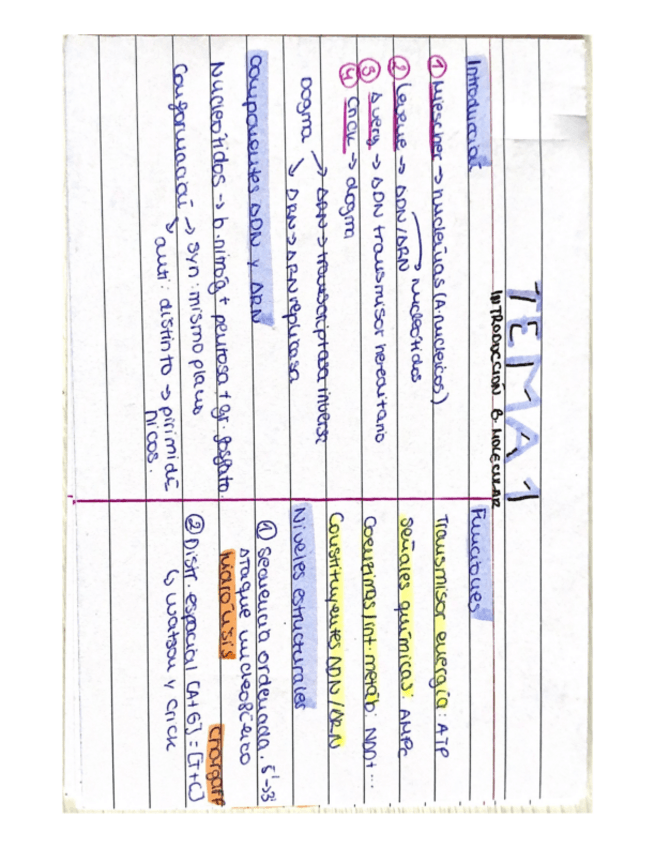 TEMA 1
INTRODUCCIÓN B. MOLECULAR
Introducción
① Miescher → nucleínas (A. nucleicos)
② Levene → ADN/ARN → nucleótidos
③ Avery → ADN transmisor hereditario
④ Crick → dogma
Dogma → ARN → transcriptasa inversa
↘ ARN → ARN replicasa
Componentes ADN y ARN
Nucleótidos → b. nitrog + pentosa + gr. fosfato.
Conformación → syn: mismo plano
↘ anti: distinto → pirimidí
nicos.
Funciones
Transmisor energía: ATP
Señales químicas: AMPc
Coenzimas/int. metab: NAD+...
Constituyentes ADN/ARN
Niveles estructurales
① Secuencia ordenada. 5'→3'
Ataque nucleofílico
hidrólisis
Chargaff
② Distr. espacial [A+G] = [T+C]
↳ Watson y Crick